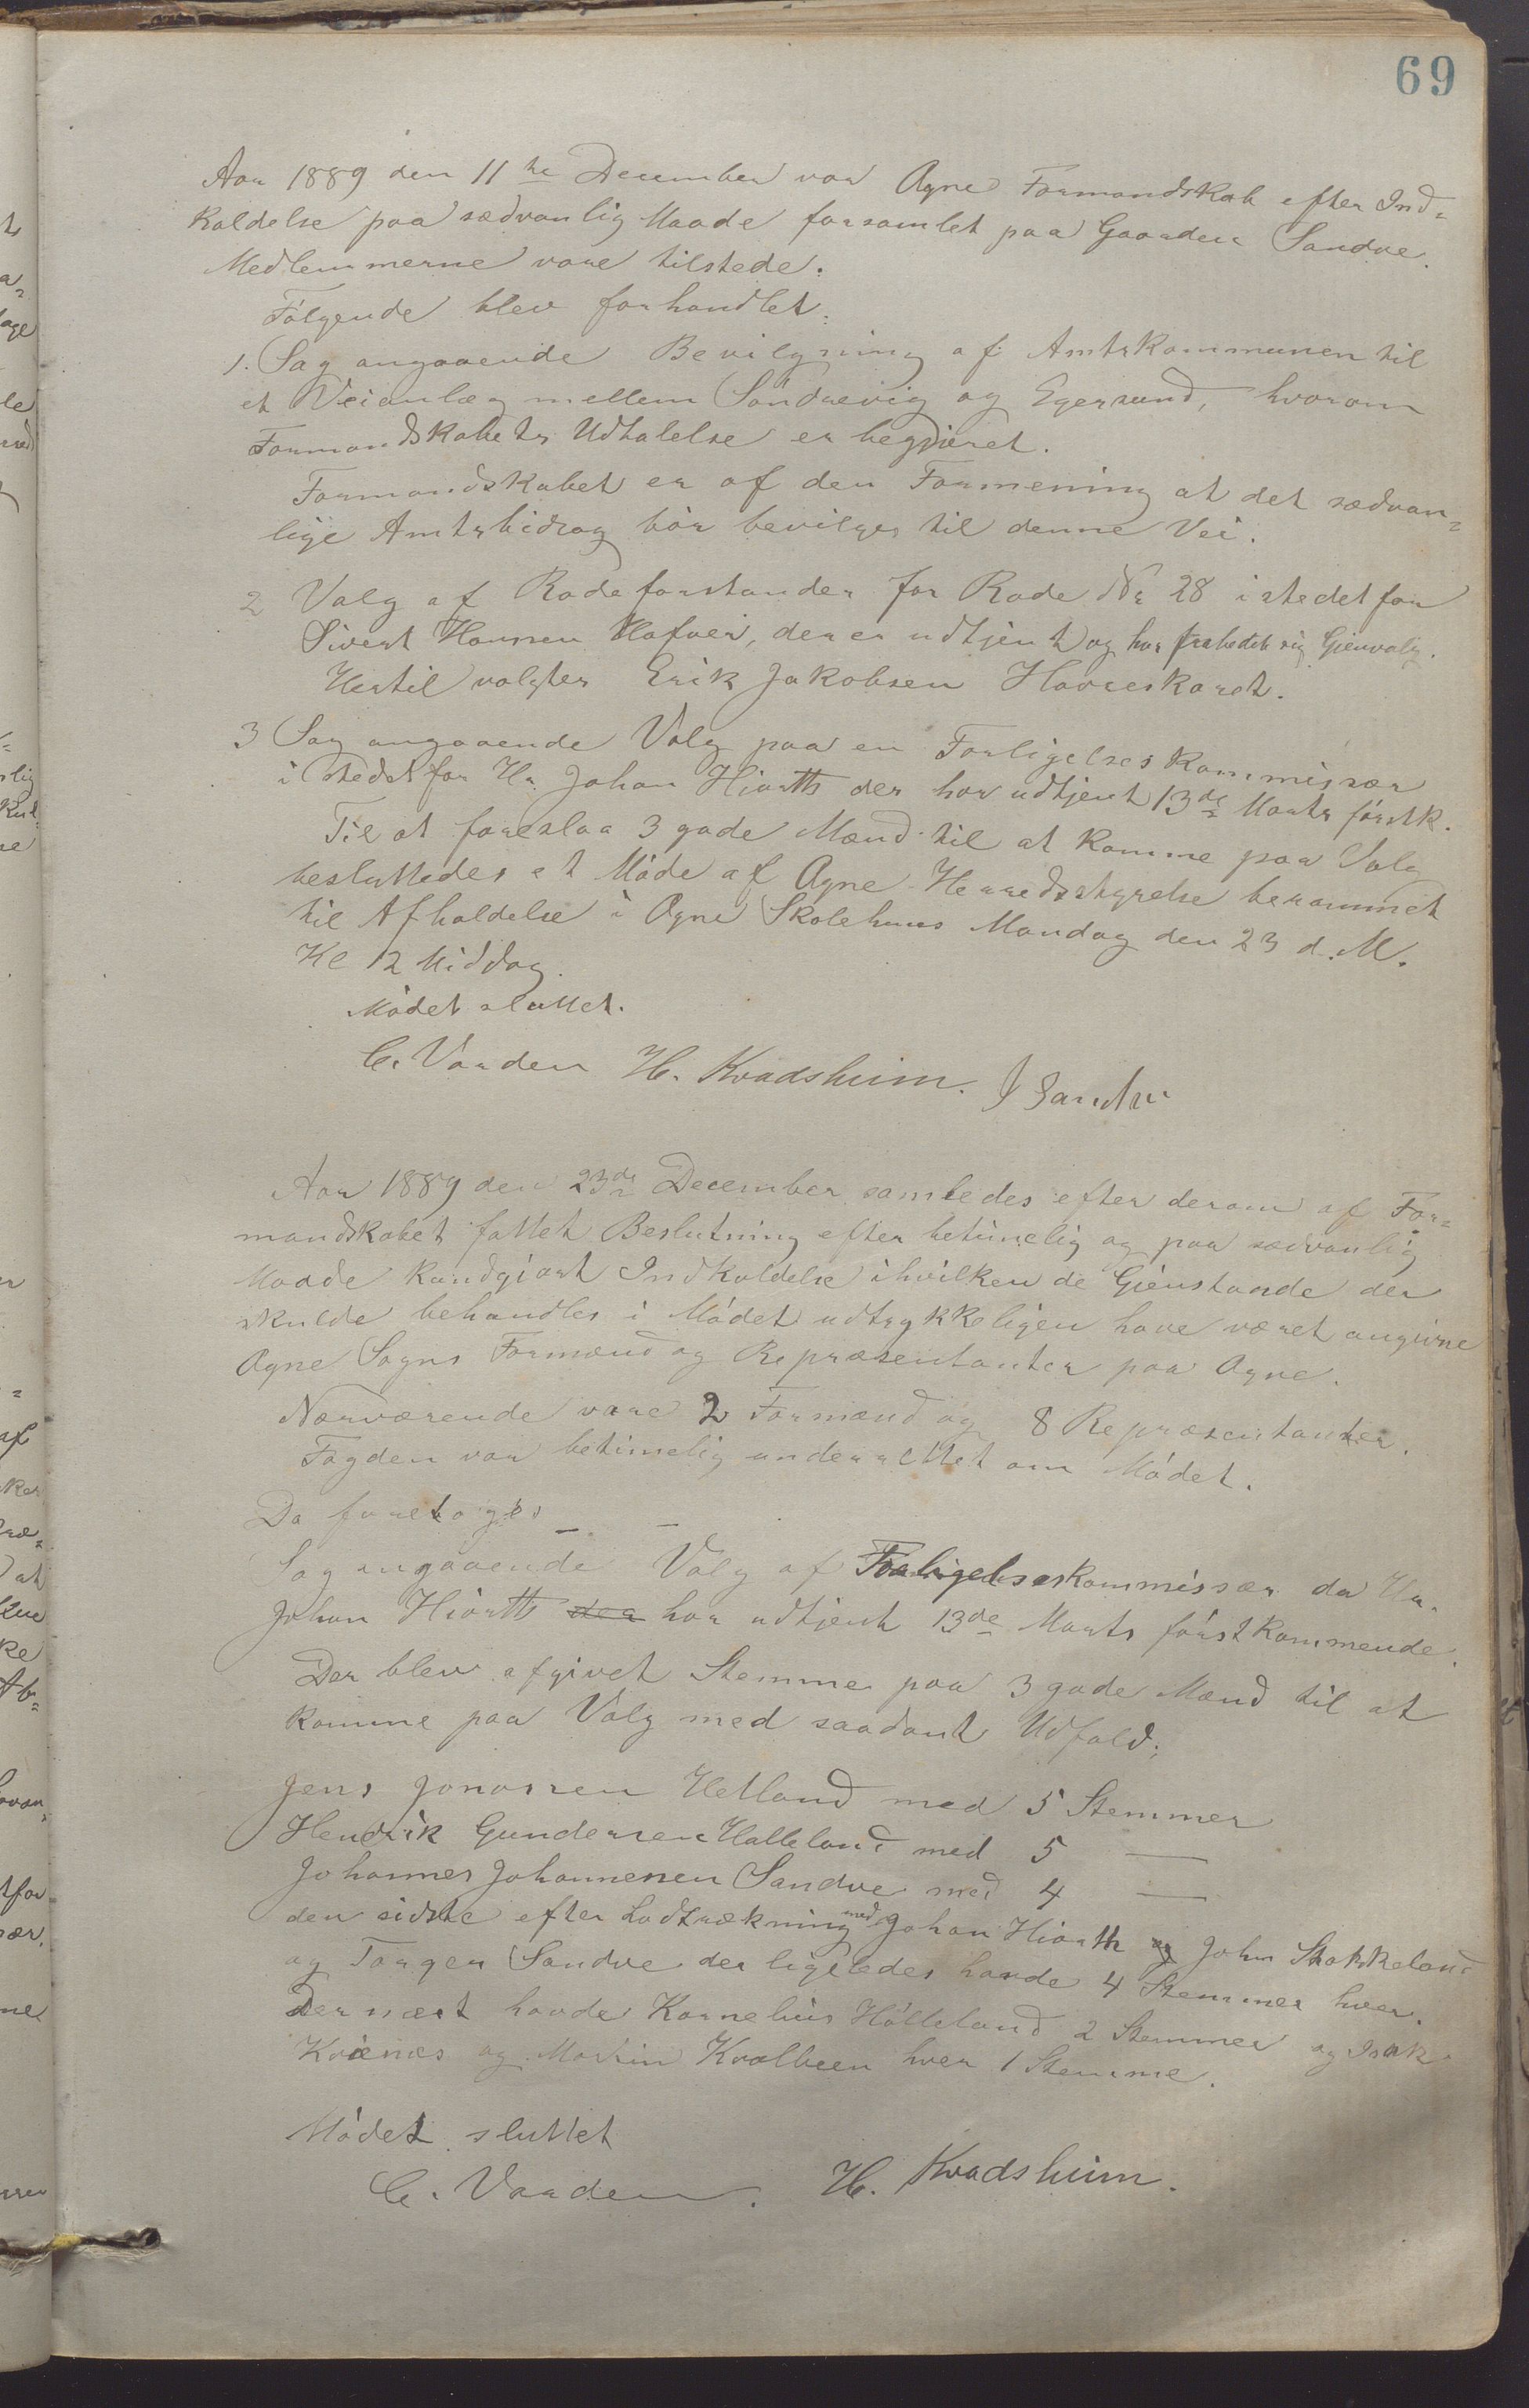 69
Aar 1889 den 11te December var Ogne Formandskab efter Ind-
kaldelse paa sædvanlig Maade forsamlet paa Gaarden Sandve.
Medlemmerne vare tilstede.
Følgende blev forhandlet:
1. Sag angaaende Bevilgning af Amtskommunen til
et Veianlæg mellem Søndrevig og Egersund, hvorom
Formandskabets Udtalelse er begjæret.
Formandskabet er af den Formening at det sædvan-
lige Amtsbidrag bør bevilges til denne Vei.
2 Valg af Rodeforstander for Rode Nr 28 istedetfor
Sivert Hansen Hafver, der er udtjent og har frabedet sig Gjenvalg.
Hertil valgtes Erik Jakobsen Havreskaret.
3 Sag angaaende Valg paa en Forligelseskommissær
i Stedet for Hr. Johan Hiorth der har udtjent 13de Marts førstk.
Til at foreslaa 3 gode Mænd til at komme paa Valg
besluttedes et Møde af Ogne Herredsstyrelse berammet
til Afholdelse i Ogne Skolehuus Mandag den 23 d. M.
Kl 12 Middag.
Mødet sluttet.
C. Vaaden H. Kvadsheim. J Sandve
Aar 1889 den 23de December samledes efter derom af For-
mandskabet fattet Beslutning efter betimelig og paa sædvanlig
Maade kundgjort Indkaldelse ihvilken de Gjenstande der
skulde behandles i Mødet udtrykkeligen have været angivne
Ogne Sogns Formænd og Repræsentanter paa Ogne.
Nærværende vare 2 Formænd og 8 Repræsentanter.
Fogden var betimelig underrettet om Mødet.
Da foretoges
Sag angaaende Valg af Forligelseskommissær da Hr.
Johan Hiorth der har udtjent 13de Marts førstkommende.
Der blev afgivet Stemme paa 3 gode Mænd til at
komme paa Valg med saadant Udfald;
Jens Jonassen Hetland med 5 Stemmer
Hendrik Gundersen Halleland med 5 —
Johannes Johannesen Sandve med 4 —
den sidste efter Lodtrækning med Johan Hiorth og John Stokkeland
og Torger Sandve der ligeledes havde 4 Stemmer hver.
Dernæst havde Kornelius Hølleland 2 Stemmer og Isak
Kvienes og Martin Kvalbeen hver 1 Stemme.
Mødet sluttet
C. Vaaden. H. Kvadsheim.